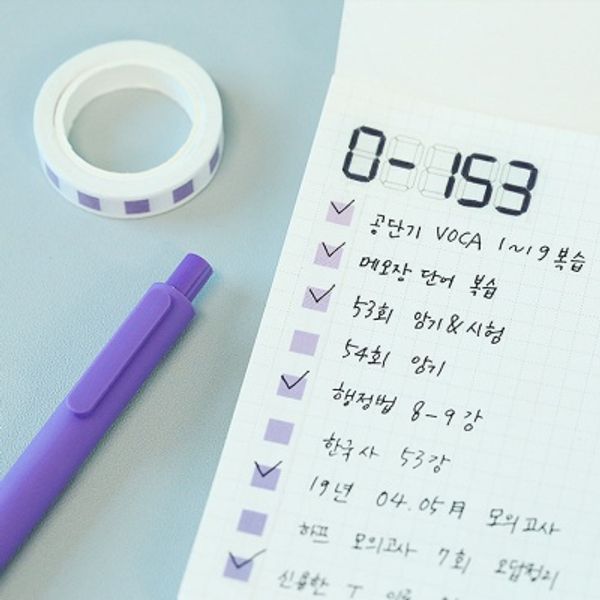 D-153
공단기 VOCA 1~19 복습
메모장 단어 복습
53회 암기&시험
54회 암기
행정법 8-9강
한국사 53강
19년 04.05月 모의고사
하프 모의고사 7회 오답정리
신용한 T